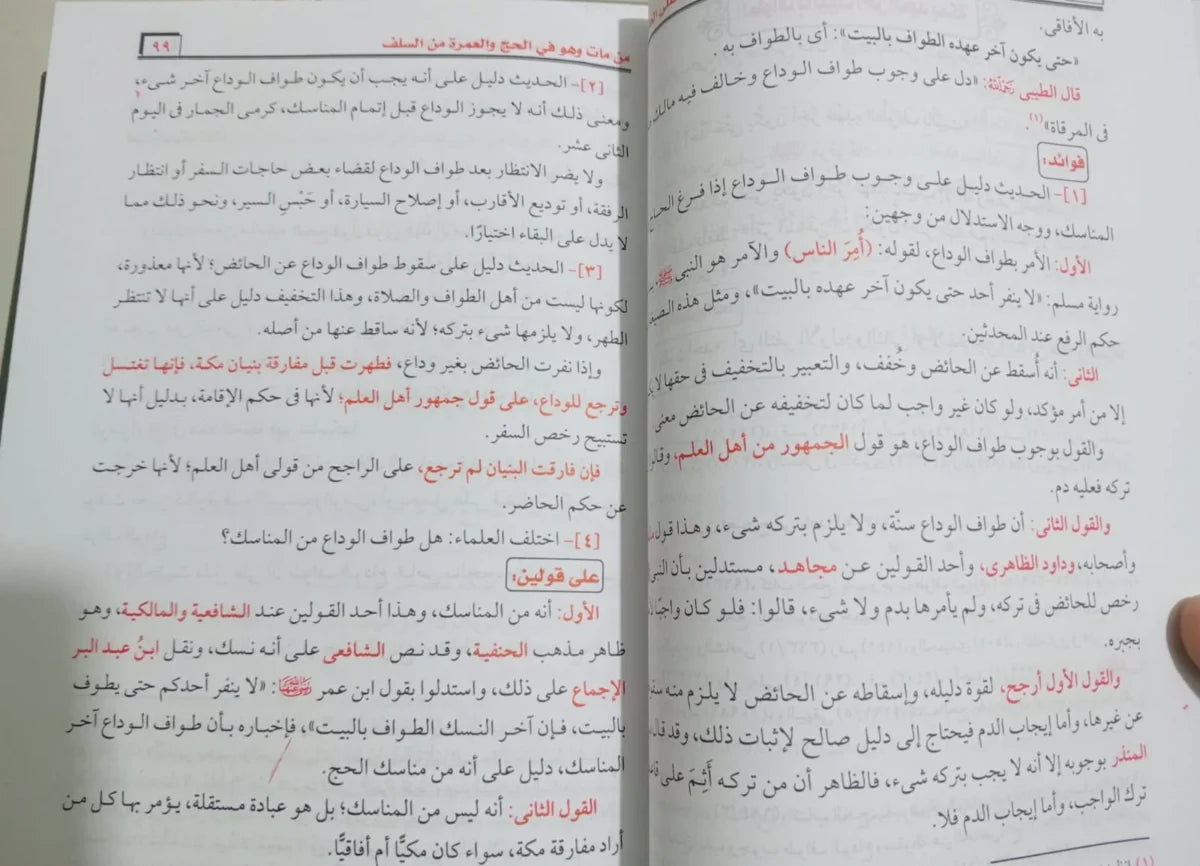 به الأفاقى.
«حتى يكون آخر عهده الطواف بالبيت»: أى بالطواف به.
قال الطيبى رحمه الله: «دل على وجوب طواف الوداع وخالف فيه مالك
فى المرقاة»(١).
فوائد:
[١]- الحديث دليل على وجوب طواف الوداع إذا فرغ
المناسك، ووجه الاستدلال من وجهين:
الأول: الأمر بطواف الوداع، لقوله: (أُمِرَ الناس) والآمر هو النبى ﷺ
رواية مسلم: «لا ينفر أحد حتى يكون آخر عهده بالبيت»، ومثل هذه
حكم الرفع عند المحدثين.
الثانى: أنه أُسقط عن الحائض وخُفف، والتعبير بالتخفيف فى حقها
إلا من أمر مؤكد، ولو كان غير واجب لما كان لتخفيفه عن الحائض معنى
والقول بوجوب طواف الوداع، هو قول الجمهور من أهل العلم،
تركه فعليه دم.
والقول الثانى: أن طواف الوداع سنّة، ولا يلزم بتركه شىء، وهذا قول
وأصحابه، وداود الظاهرى، وأحد القولين عن مجاهد، مستدلين بأن
رخص للحائض فى تركه، ولم يأمرها بدم ولا شىء، قالوا: فلو كان واجبًا
بجبره.
والقول الأول أرجح، لقوة دليله، وإسقاطه عن الحائض لا يلزم منه
عن غيرها، وأما إيجاب الدم فيحتاج إلى دليل صالح لإثبات ذلك، وقد
المنذر بوجوبه إلا أنه لا يجب بتركه شىء، فالظاهر أن من تركه أَثِمَ على
ترك الواجب، وأما إيجاب الدم فلا.
من مات وهو في الحج والعمرة من السلف ٩٩
[٢]- الحديث دليل على أنه يجب أن يكون طواف الوداع آخر شىء،
ومعنى ذلك أنه لا يجوز الوداع قبل إتمام المناسك، كرمى الجمار فى اليوم
الثانى عشر.
ولا يضر الانتظار بعد طواف الوداع لقضاء بعض حاجات السفر أو انتظار
الرفقة، أو توديع الأقارب، أو إصلاح السيارة، أو حَبْسِ السير، ونحو ذلك مما
لا يدل على البقاء اختيارًا.
[٣]- الحديث دليل على سقوط طواف الوداع عن الحائض؛ لأنها معذورة،
لكونها ليست من أهل الطواف والصلاة، وهذا التخفيف دليل على أنها لا تنتظر
الطهر، ولا يلزمها شىء بتركه؛ لأنه ساقط عنها من أصله.
وإذا نفرت الحائض بغير وداع، فطهرت قبل مفارقة بنيان مكة، فإنها تغتسل
وترجع للوداع، على قول جمهور أهل العلم؛ لأنها فى حكم الإقامة، بدليل أنها لا
تستبيح رخص السفر.
فإن فارقت البنيان لم ترجع، على الراجح من قولى أهل العلم؛ لأنها خرجت
عن حكم الحاضر.
[٤]- اختلف العلماء: هل طواف الوداع من المناسك؟
على قولين:
الأول: أنه من المناسك، وهذا أحد القولين عند الشافعية والمالكية، وهو
ظاهر مذهب الحنفية، وقد نص الشافعى على أنه نسك، ونقل ابنُ عبد البر
الإجماع على ذلك، واستدلوا بقول ابن عمر رضي الله عنهما: «لا ينفر أحدكم حتى يطوف
بالبيت، فإن آخر النسك الطواف بالبيت»، فإخباره بأن طواف الوداع آخر
المناسك، دليل على أنه من مناسك الحج.
القول الثانى: أنه ليس من المناسك؛ بل هو عبادة مستقلة، يؤمر بها كل من
أراد مفارقة مكة، سواء كان مكيًّا أم أفاقيًّا.